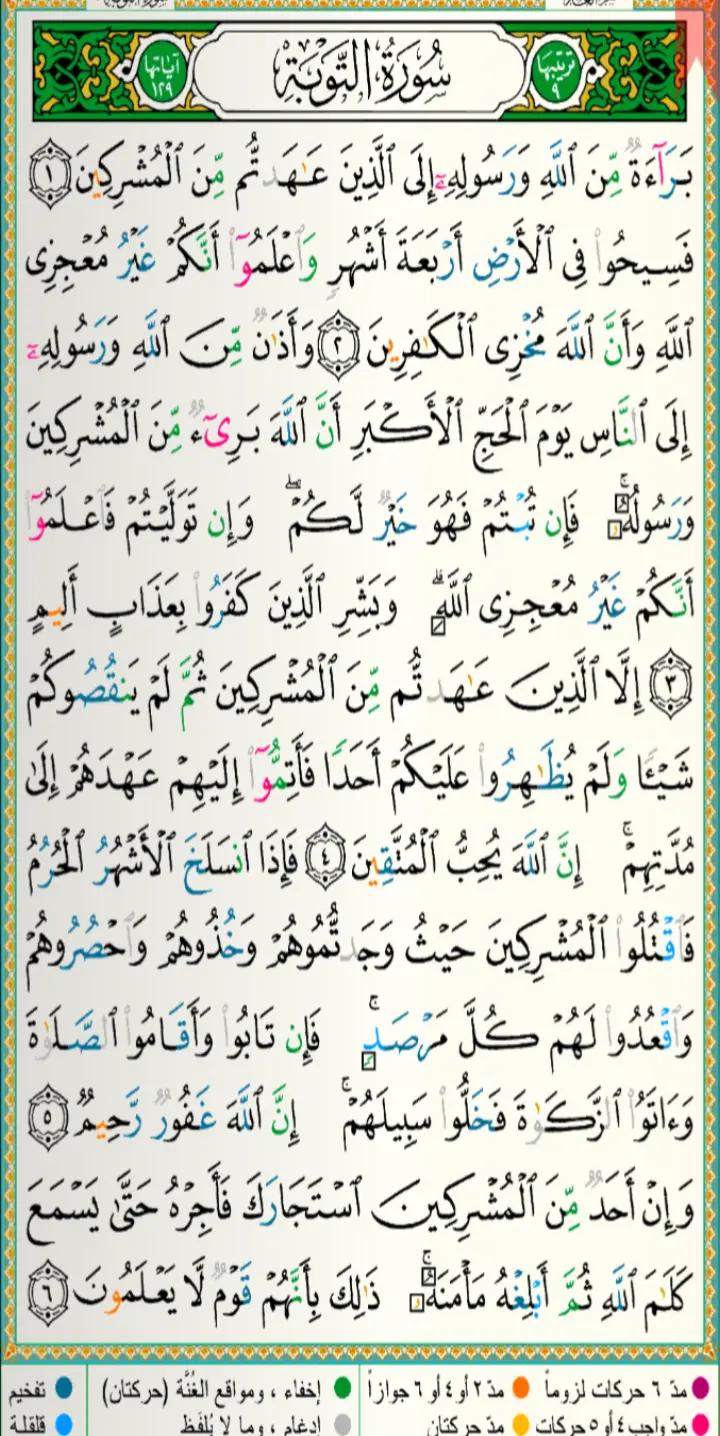 ترتيبها ٩
سُورَةُ التَّوْبَةِ
آياتها ١٢٩
بَرَآءَةٌ مِّنَ ٱللَّهِ وَرَسُولِهِۦٓ إِلَى ٱلَّذِينَ عَـٰهَدتُّم مِّنَ ٱلْمُشْرِكِينَ ١
فَسِيحُوا۟ فِى ٱلْأَرْضِ أَرْبَعَةَ أَشْهُرٍ وَٱعْلَمُوٓا۟ أَنَّكُمْ غَيْرُ مُعْجِزِى
ٱللَّهِ وَأَنَّ ٱللَّهَ مُخْزِى ٱلْكَـٰفِرِينَ ٢ وَأَذَٰنٌ مِّنَ ٱللَّهِ وَرَسُولِهِۦٓ
إِلَى ٱلنَّاسِ يَوْمَ ٱلْحَجِّ ٱلْأَكْبَرِ أَنَّ ٱللَّهَ بَرِىٓءٌ مِّنَ ٱلْمُشْرِكِينَ
وَرَسُولُهُۥ ۚ فَإِن تُبْتُمْ فَهُوَ خَيْرٌ لَّكُمْ ۖ وَإِن تَوَلَّيْتُمْ فَٱعْلَمُوٓا۟
أَنَّكُمْ غَيْرُ مُعْجِزِى ٱللَّهِ ۗ وَبَشِّرِ ٱلَّذِينَ كَفَرُوا۟ بِعَذَابٍ أَلِيمٍ
٣ إِلَّا ٱلَّذِينَ عَـٰهَدتُّم مِّنَ ٱلْمُشْرِكِينَ ثُمَّ لَمْ يَنقُصُوكُمْ
شَيْـًٔا وَلَمْ يُظَـٰهِرُوا۟ عَلَيْكُمْ أَحَدًا فَأَتِمُّوٓا۟ إِلَيْهِمْ عَهْدَهُمْ إِلَىٰ
مُدَّتِهِمْ ۚ إِنَّ ٱللَّهَ يُحِبُّ ٱلْمُتَّقِينَ ٤ فَإِذَا ٱنسَلَخَ ٱلْأَشْهُرُ ٱلْحُرُمُ
فَٱقْتُلُوا۟ ٱلْمُشْرِكِينَ حَيْثُ وَجَدتُّمُوهُمْ وَخُذُوهُمْ وَٱحْصُرُوهُمْ
وَٱقْعُدُوا۟ لَهُمْ كُلَّ مَرْصَدٍ ۚ فَإِن تَابُوا۟ وَأَقَامُوا۟ ٱلصَّلَوٰةَ
وَءَاتَوُا۟ ٱلزَّكَوٰةَ فَخَلُّوا۟ سَبِيلَهُمْ ۚ إِنَّ ٱللَّهَ غَفُورٌ رَّحِيمٌ ٥
وَإِنْ أَحَدٌ مِّنَ ٱلْمُشْرِكِينَ ٱسْتَجَارَكَ فَأَجِرْهُ حَتَّىٰ يَسْمَعَ
كَلَـٰمَ ٱللَّهِ ثُمَّ أَبْلِغْهُ مَأْمَنَهُۥ ۚ ذَٰلِكَ بِأَنَّهُمْ قَوْمٌ لَّا يَعْلَمُونَ ٦
مدّ ٦ حركات لزوماً مدّ ٢ أو ٤ أو ٦ جوازاً إخفاء ، ومواقع الغُنَّة (حركتان) تفخيم
مدّ واجب ٤ أو ٥ حركات مدّ حركتان إدغام ، وما لا يُلفَظ قلقلة